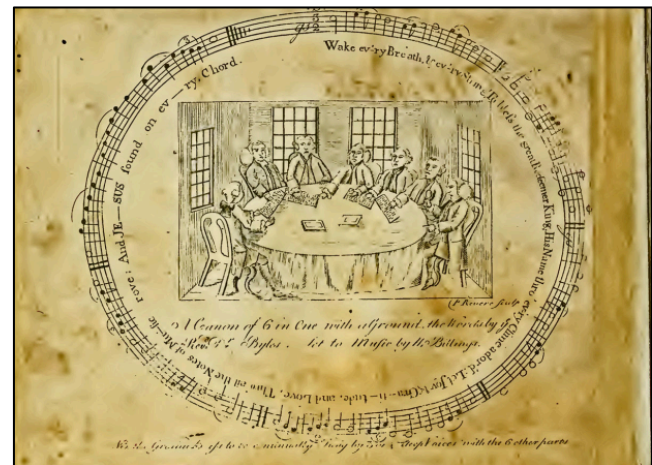 Wake ev'ry Breath, & ev'ry String, To bless the great Redeemer King, His Name thro' ev'ry Clime ador'd: Let Joy & Gra–ti–tude, and Love, Thro' all the Notes of Mu–sic rove: And JE–SUS found on ev–ry, Chord.
P. Revere sculp
A Canon of 6 in One with a Ground, the Words by ye
Revd. Dr. Byles. Set to Music by W. Billings.
be continually Sung by with the 6 other parts